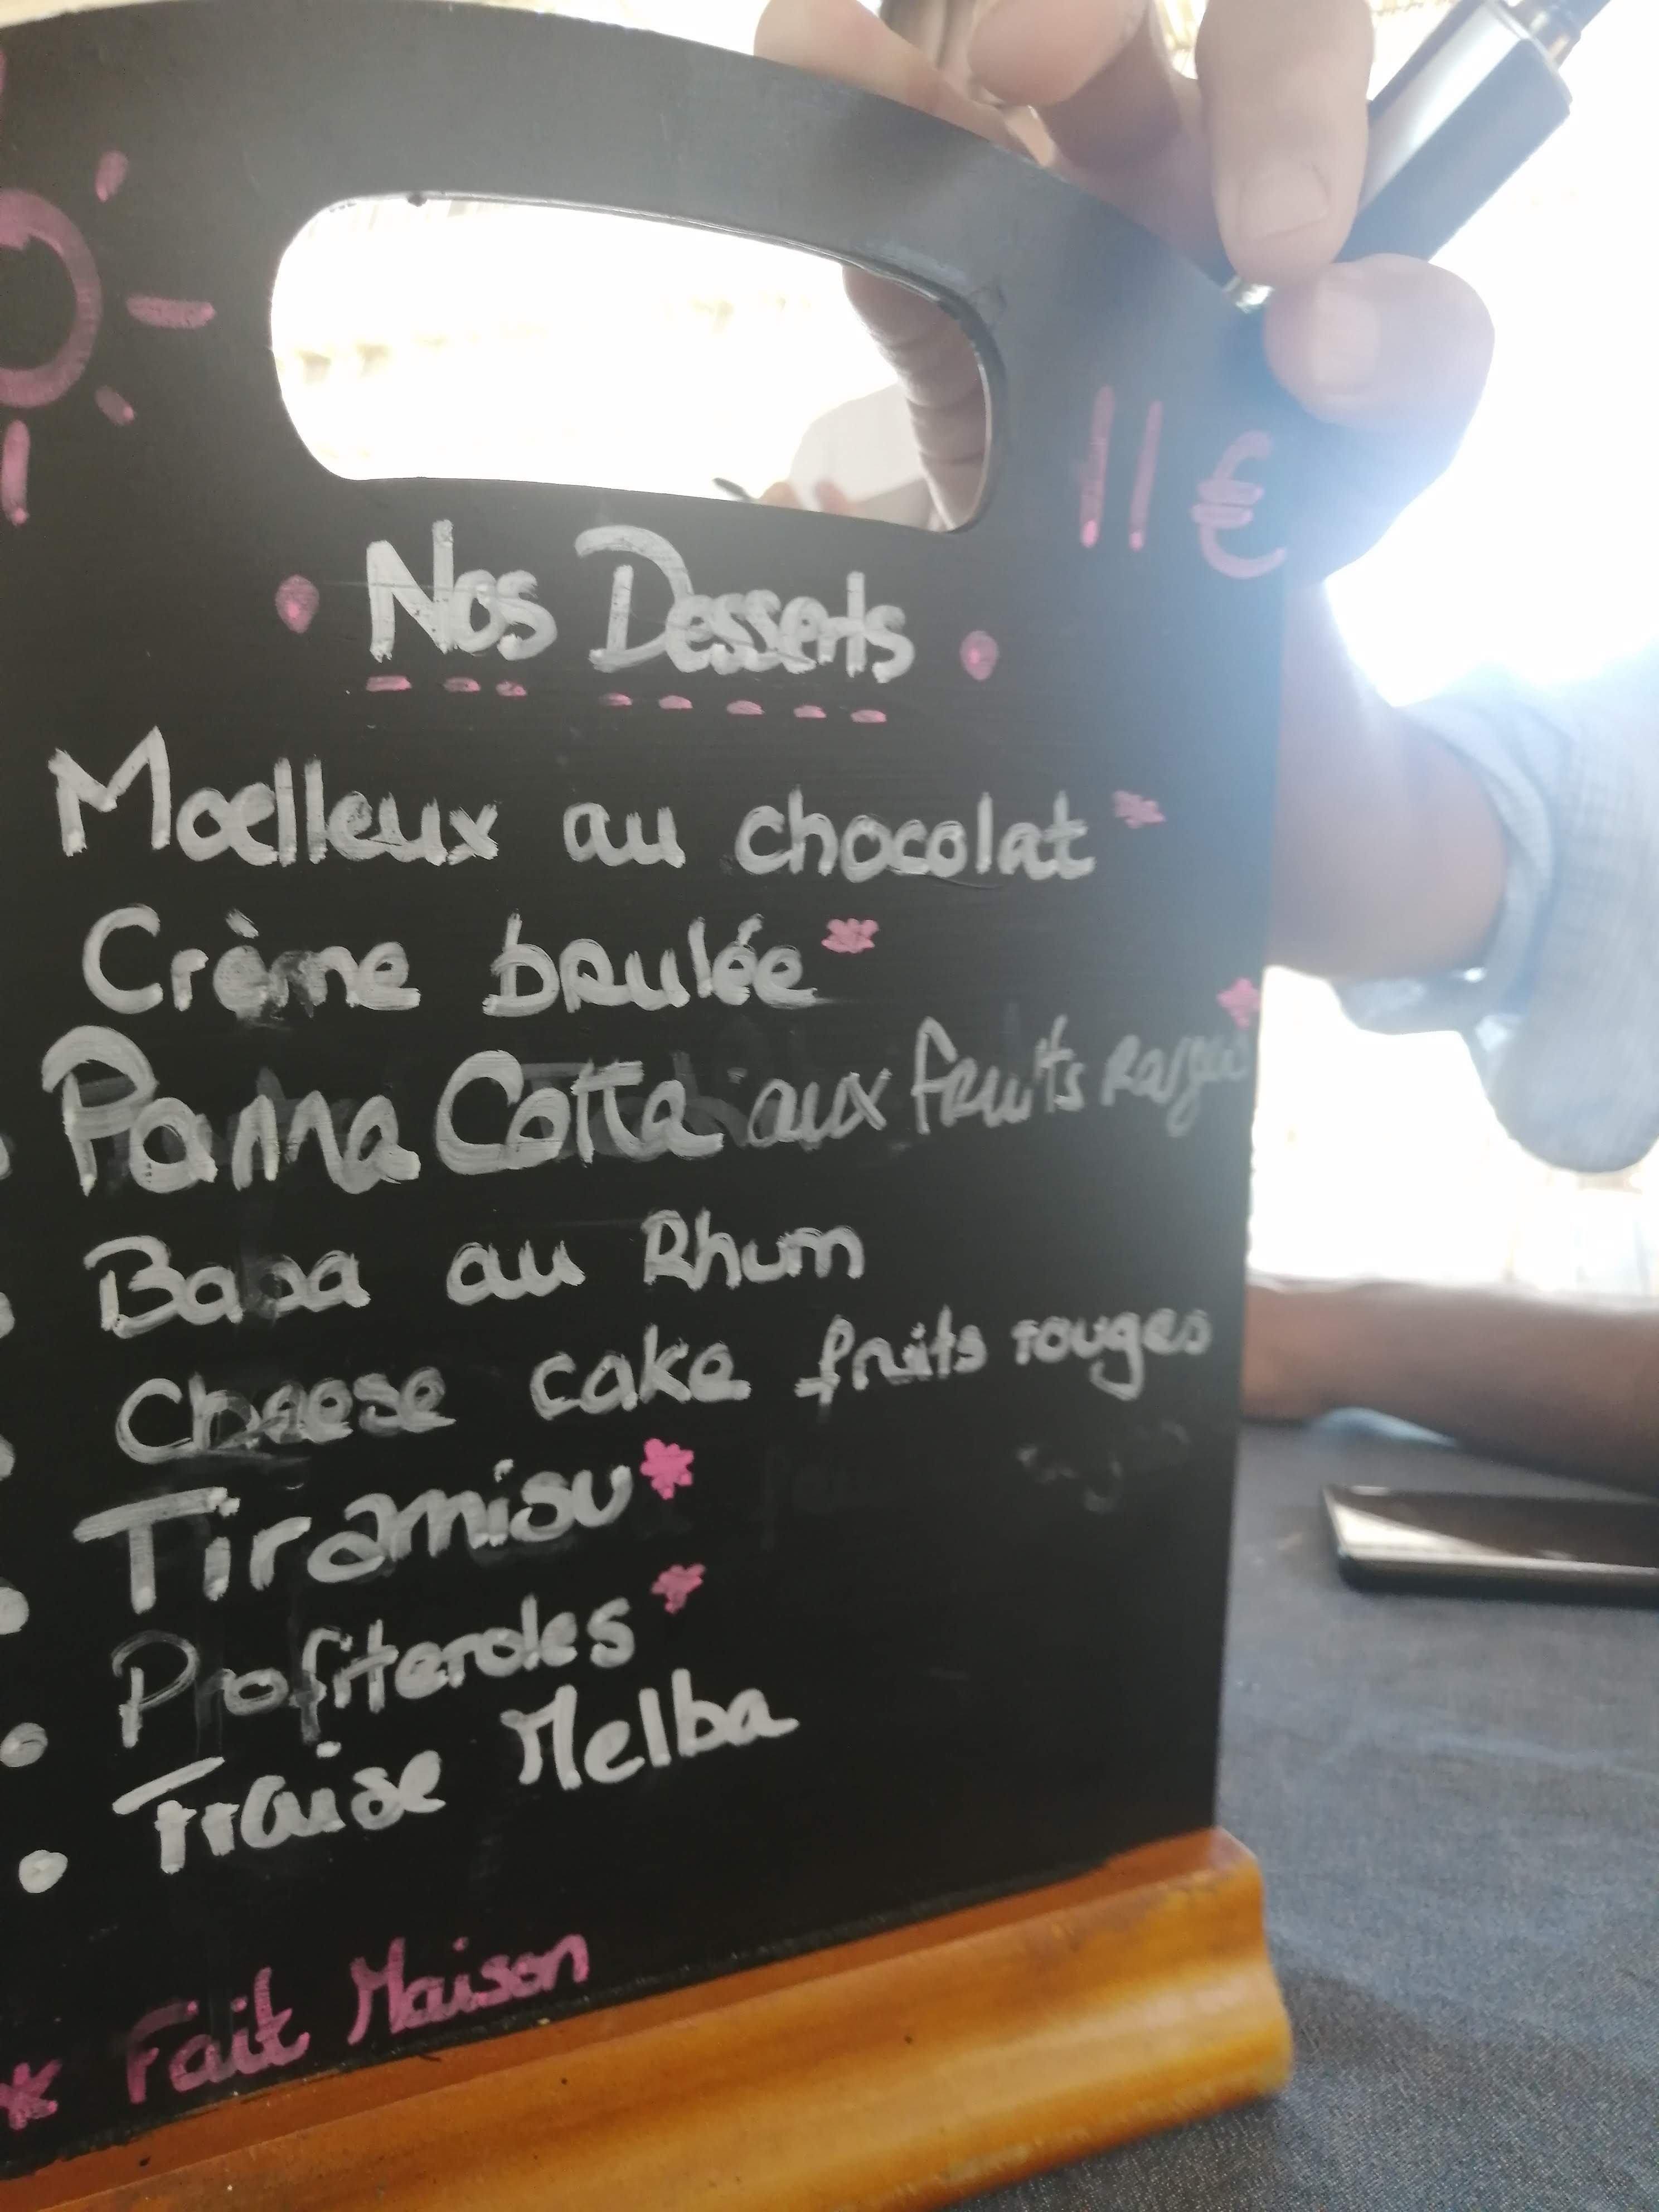 11 €
Nos Desserts
Moelleux au chocolat *
Crème brulée *
Panna Cotta aux fruits rouges *
Baba au Rhum
Cheese cake fruits rouges
Tiramisu *
Profiteroles *
Fraise Melba
* Fait Maison